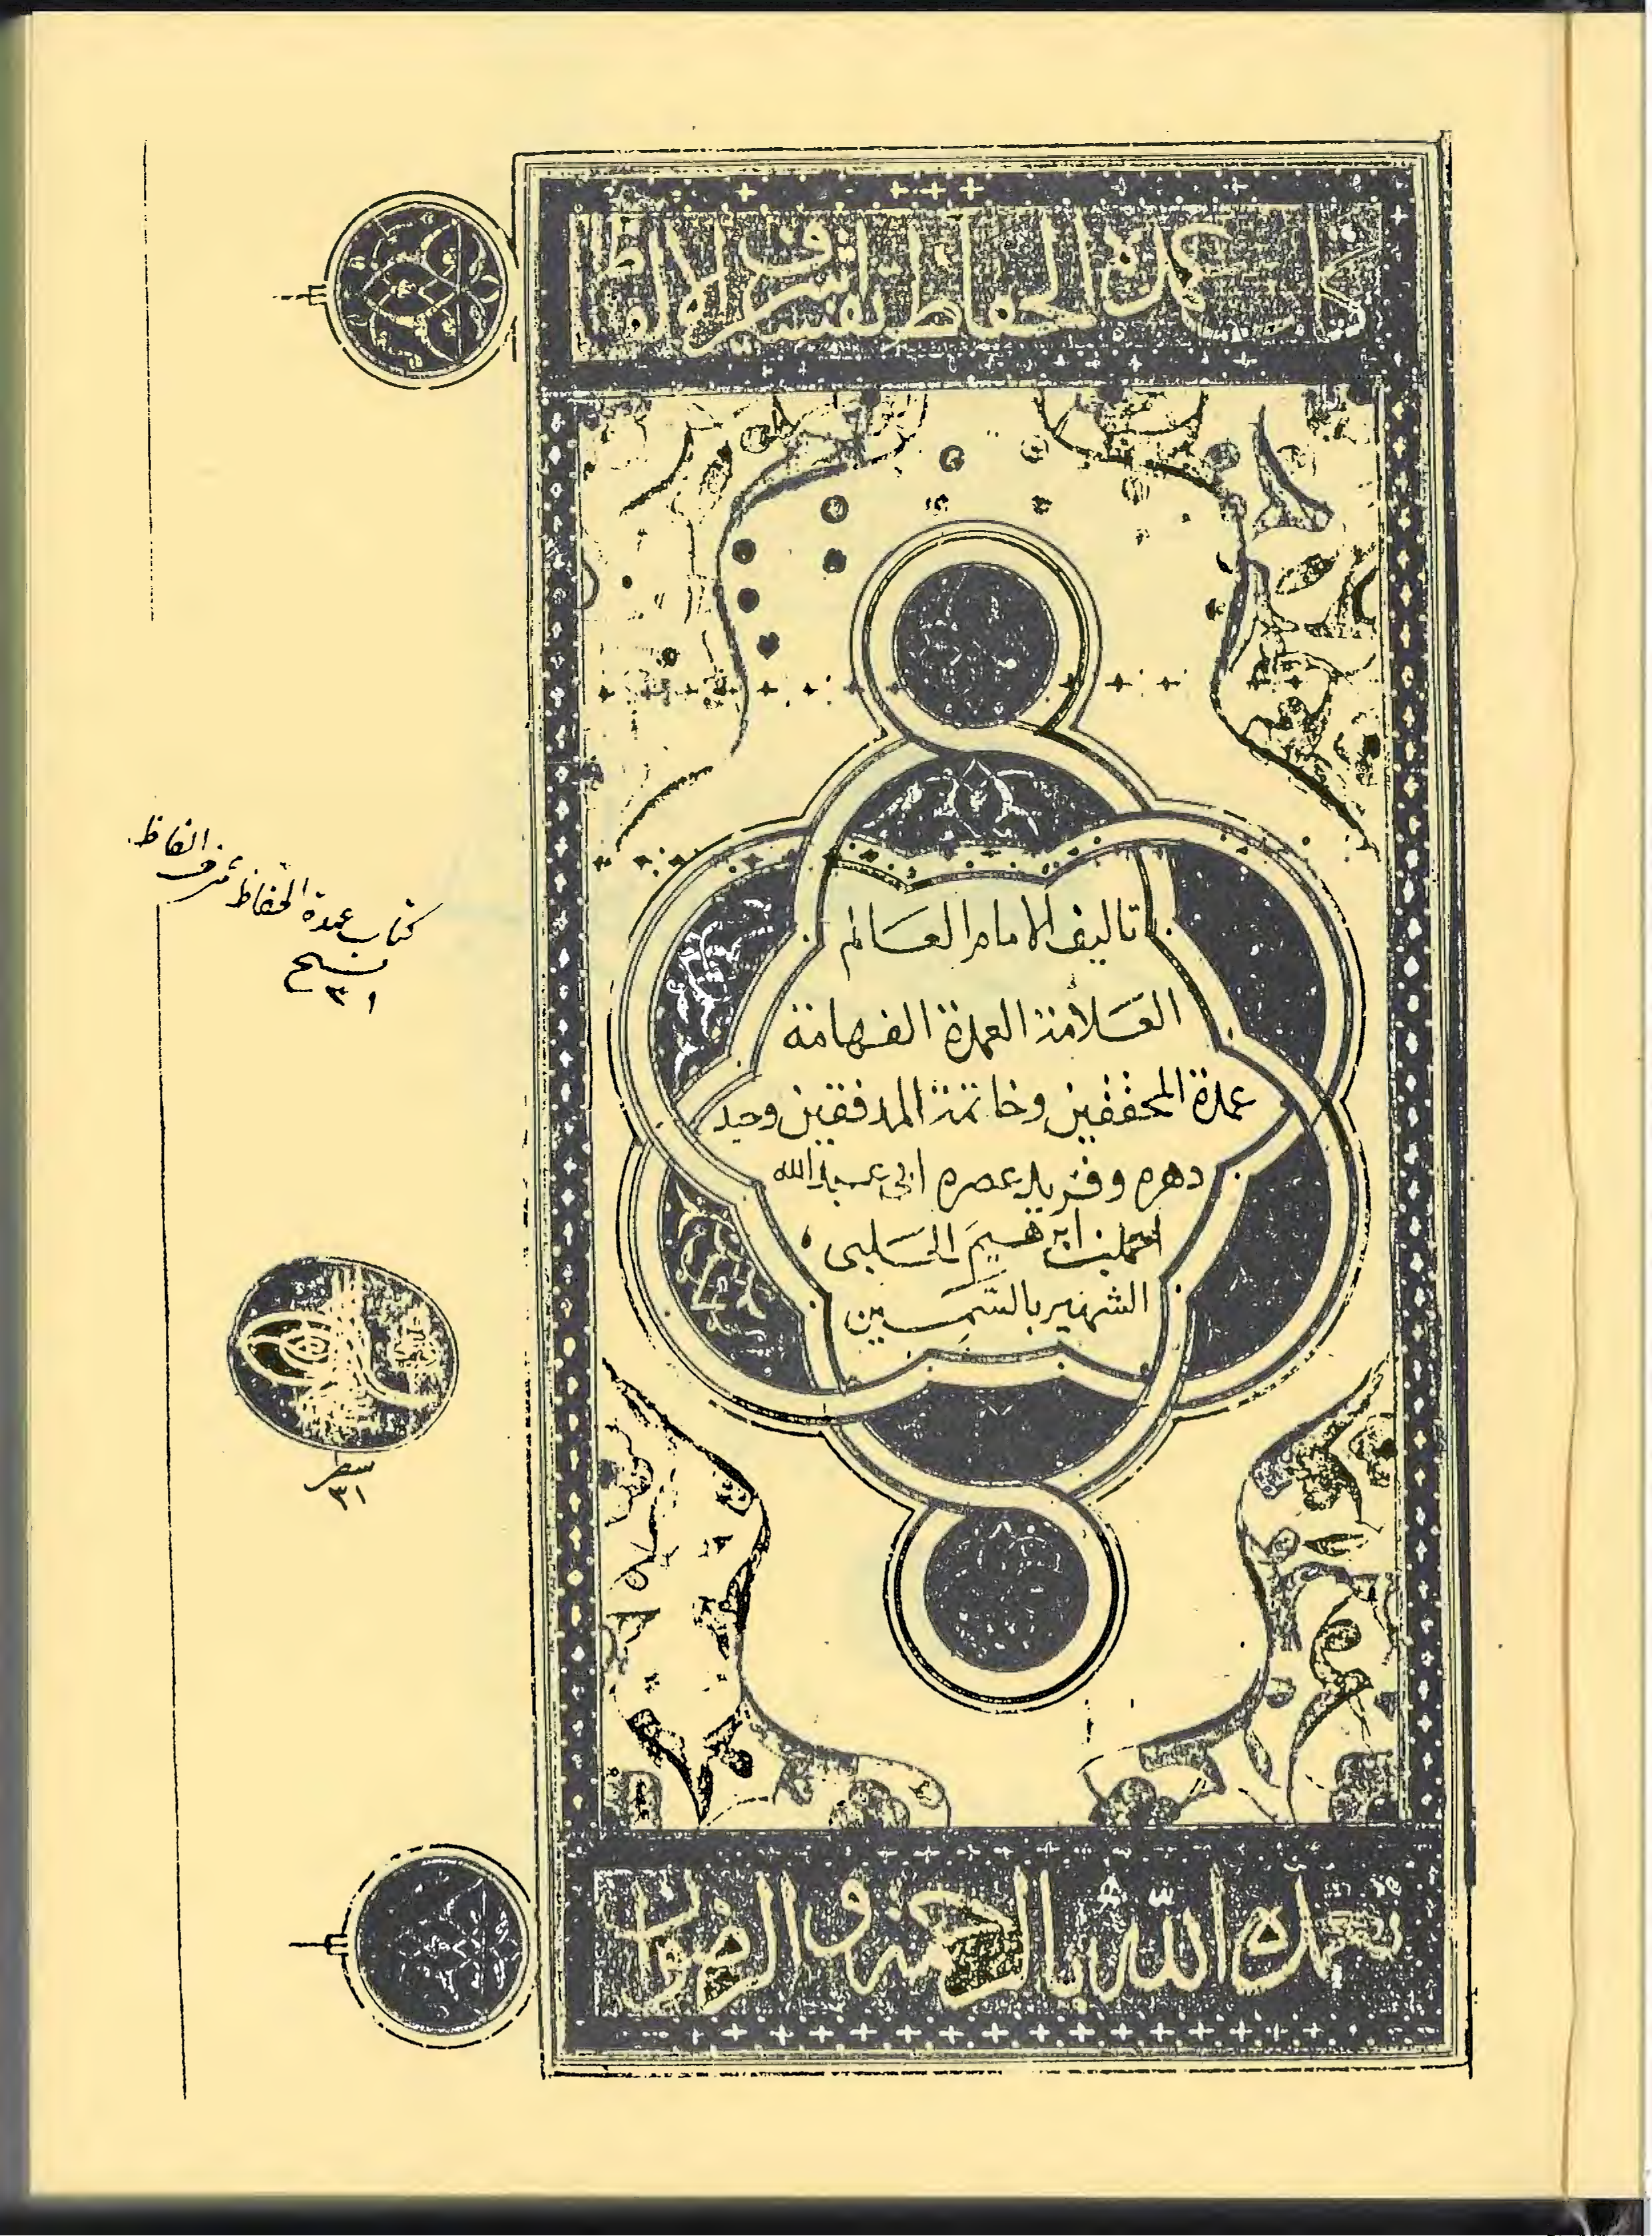 كتاب عمدة الحفاظ تفسير اشرف الالفاظ
تاليف الامام العالم
العلامة العمدة الفهامة
عمدة المحققين وخاتمة المدققين وحيد
دهره وفريد عصره ابي عبد الله
احمد بن ابرهيم الحلبى
الشهير بالسمين
تغمده الله بالرحمة والرضوان
كتاب عمدة الحفاظ شرف الفاظ
نسخ
٣١
سطر
٣١